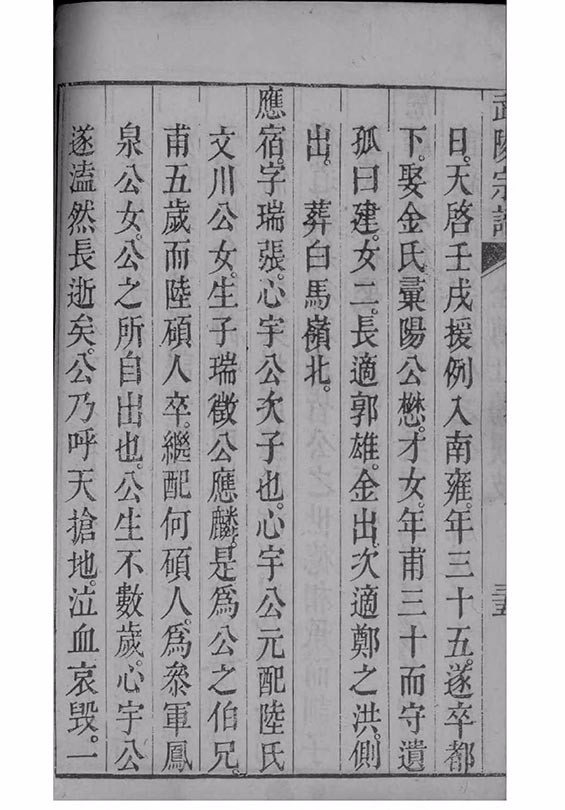 武陵宗譜
三五
日。天啓壬戌援例入南雍。年三十五。遂卒都
下。娶金氏彙陽公懋。才女。年甫三十而守遺
孤曰建。女二。長適郭雄。金出。次適鄭之洪。側
出。葬白馬嶺北。
應宿。字瑞張。心宇公次子也。心宇公元配陸氏
文川公女。生子瑞徵公應麟。是爲公之伯兄。
甫五歲而陸碩人卒。繼配何碩人。爲叅軍鳳
泉公女。公之所自出也。公生不數歲。心宇公
遂溘然長逝矣。公乃呼天搶地。泣血哀毀。一